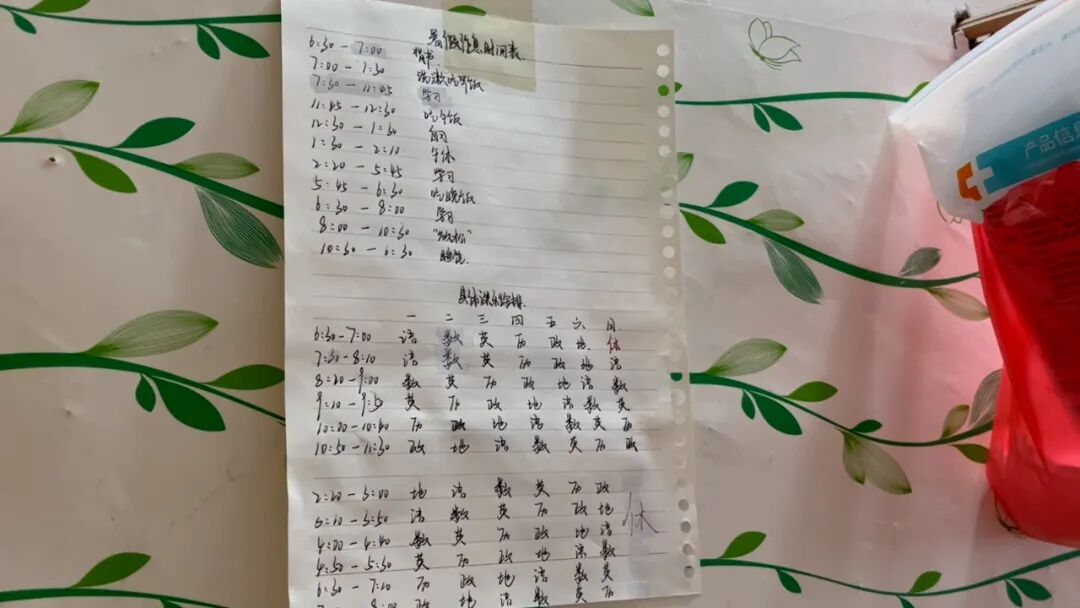 暑假作息时间表
6:30 - 7:00 背书
7:00 - 7:30 洗漱吃早饭
7:30 - 11:45 学习
11:45 - 12:30 吃午饭
12:30 - 1:30
1:30 - 2:10 午休
2:20 - 5:45 学习
5:45 - 6:30 吃晚饭
6:30 - 8:00 学习
8:00 - 10:30 "放松"
10:30 - 6:30 睡觉
具体课程安排
一 二 三 四 五 六 日
6:30-7:00 语 数 英 历 政 地 休
7:30-8:10 语 数 英 历 政 地 语
8:20-9:00 数 英 历 政 地 语 数
9:10-9:50 英 历 政 地 语 数 英
10:00-10:40 历 政 地 语 数 英 历
10:50-11:30 政 地 语 数 英 历 政
2:20-3:00 地 语 数 英 历 政
3:10-3:50 语 数 英 历 政 地
休
4:00-4:40 数 英 历 政 地 语
4:50-5:30 英 历 政 地 语 数
6:30-7:10 历 政 地 语 数 英
8:00 政 地 语 数 英 历
产品信息